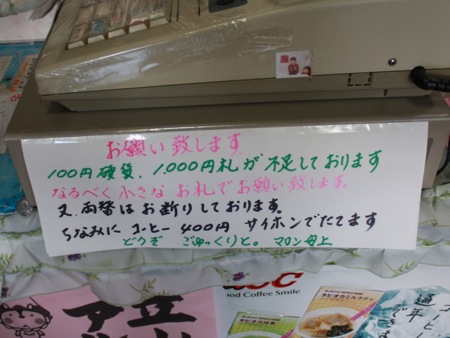 お願い致します
100円硬貨、1,000円札が不足しております
なるべく小さなお札でお願い致します。
又、両替はお断りしております。
ちなみに コーヒー 400円 サイホンでたてます
どうぞ ごゆっくりと。 マロン母上
Good Coffee Smile
タピオカミルクティ